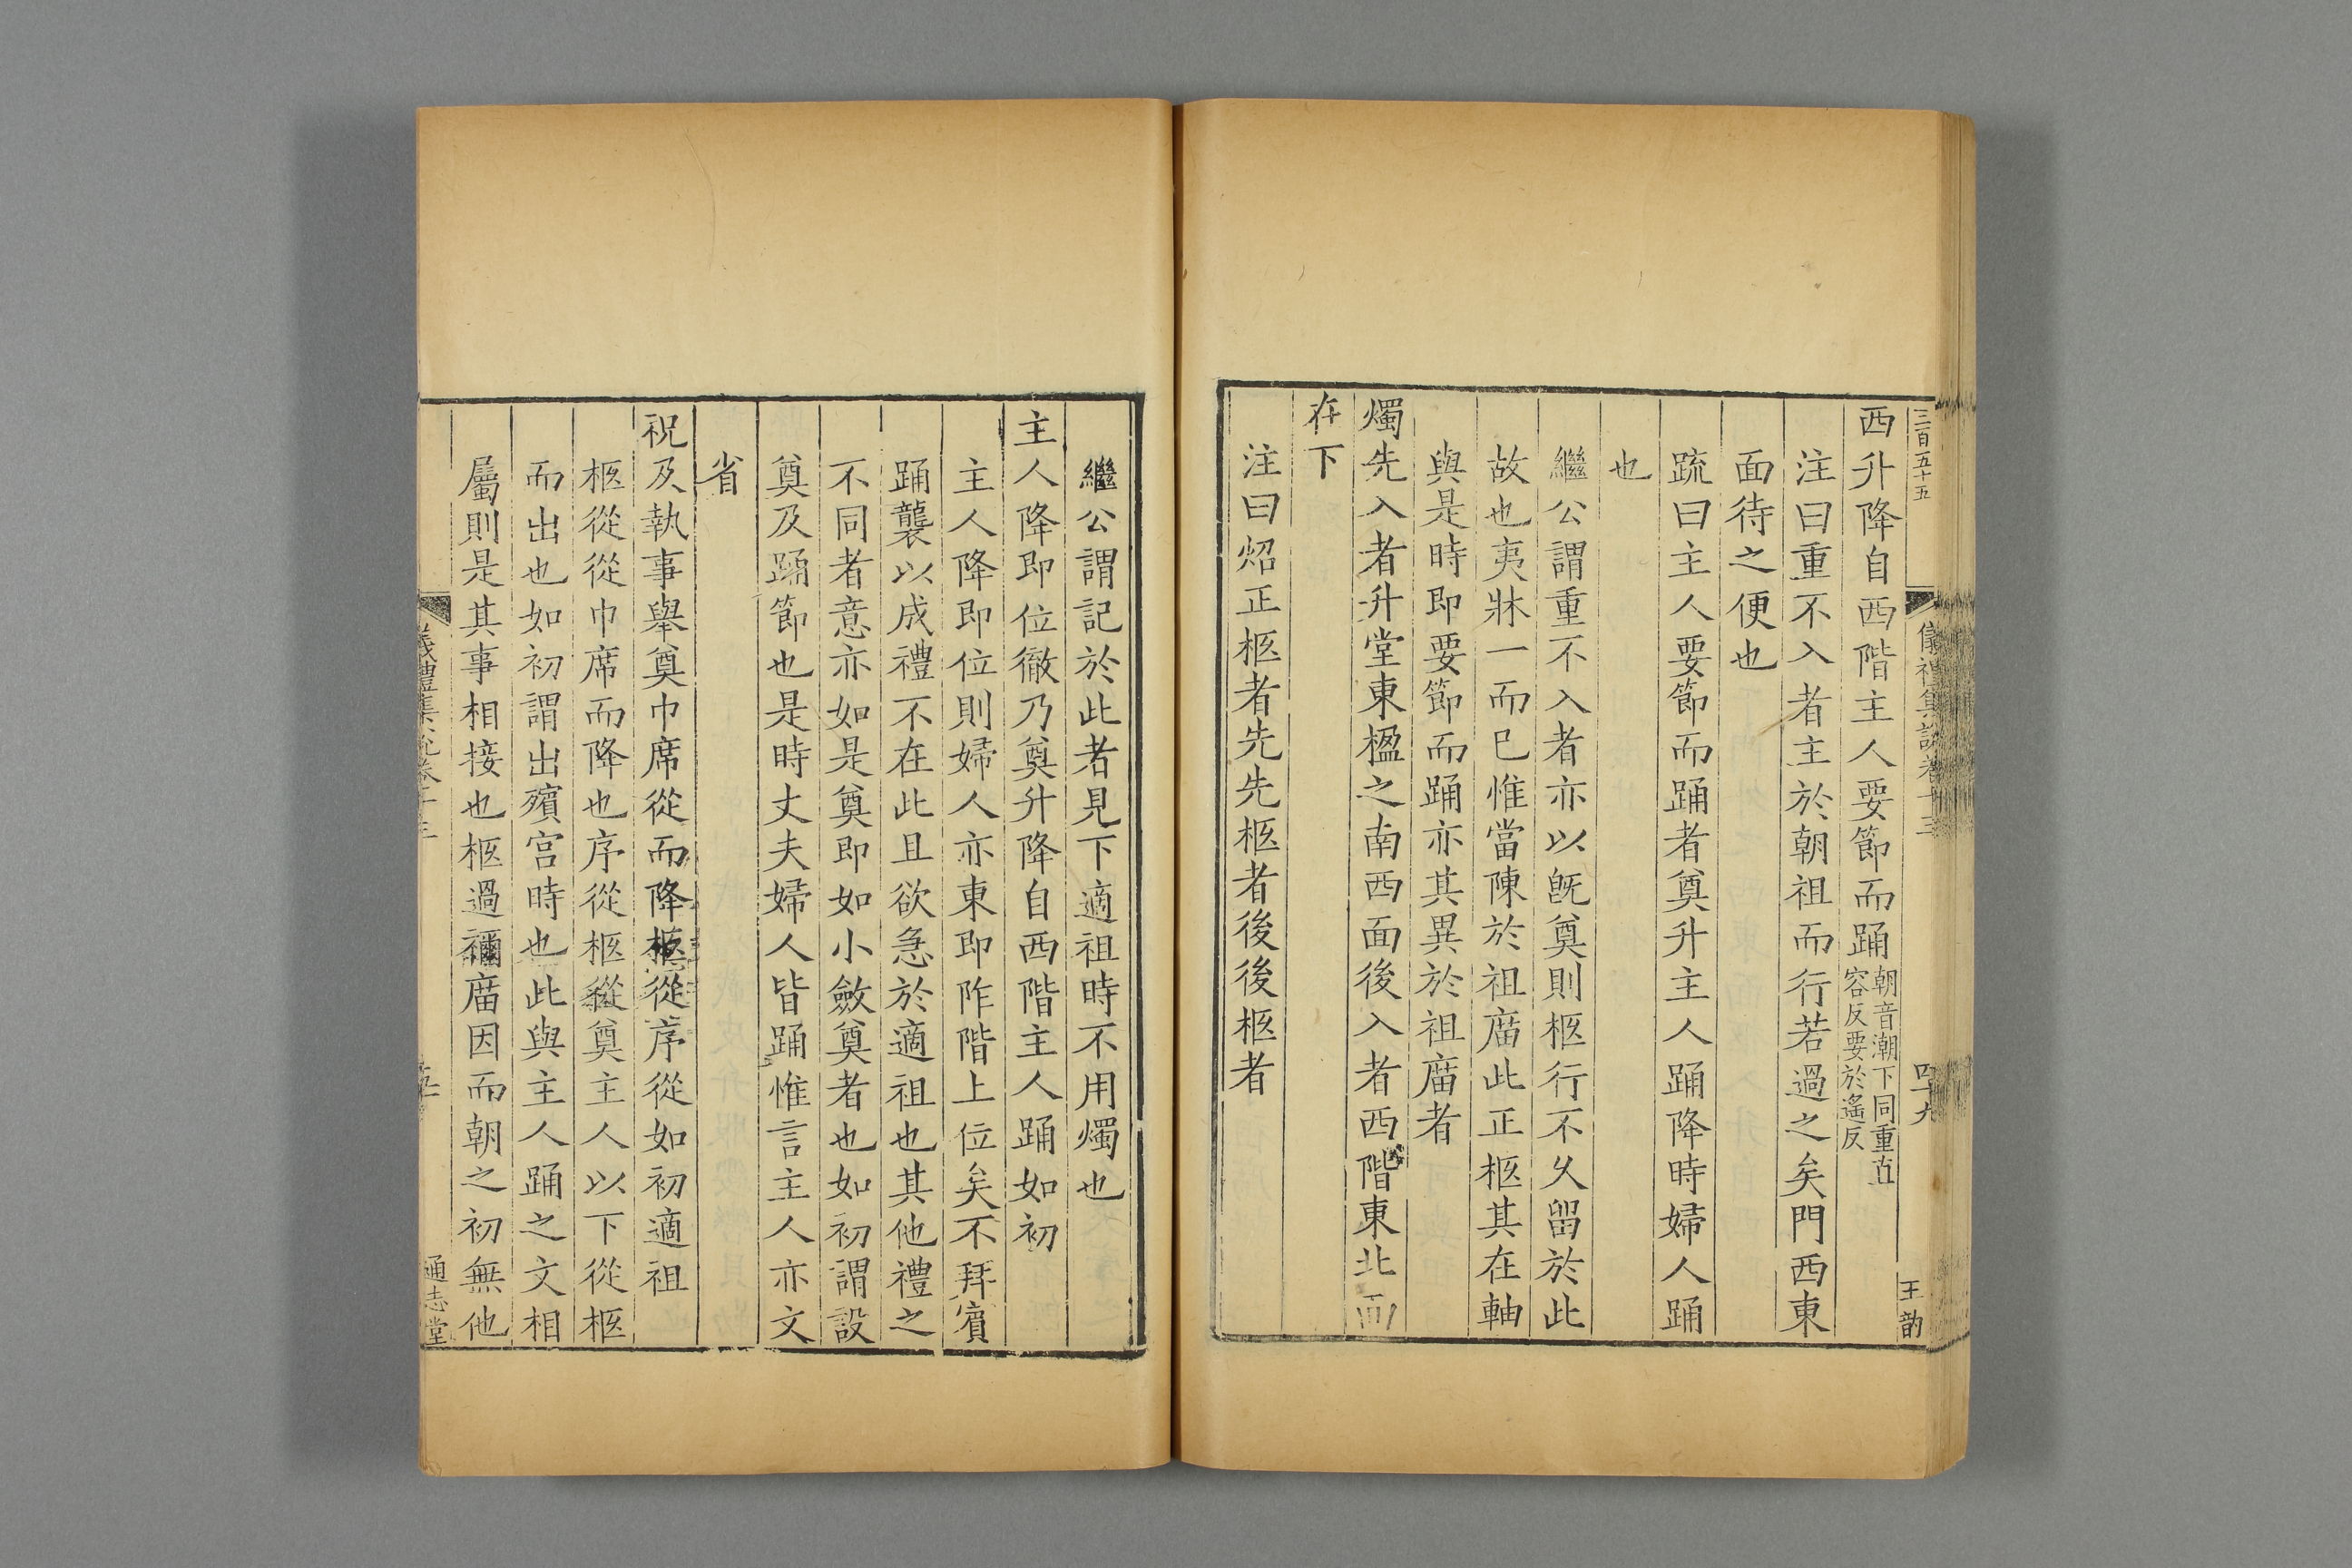 三百五十五
儀禮集說卷十三
四十九
王韵
西升降自西階主人要節而踊朝音潮下同重直
容反要於遙反
注曰重不入者主於朝祖而行若過之矣門西東
面待之便也
疏曰主人要節而踊者奠升主人踊降時婦人踊
也
繼公謂重不入者亦以旣奠則柩行不久留於此
故也夷牀一而已惟當陳於祖廟此正柩其在軸
與是時即要節而踊亦其異於祖廟者
燭先入者升堂東楹之南西面後入者西階東北面
在下
注曰炤正柩者先先柩者後後柩者
繼公謂記於此者見下適祖時不用燭也
主人降即位徹乃奠升降自西階主人踊如初
主人降即位則婦人亦東即阼階上位矣不拜賓
踊襲以成禮不在此且欲急於適祖也其他禮之
不同者意亦如是奠即如小斂奠者也如初謂設
奠及踊節也是時丈夫婦人皆踊惟言主人亦文
省
祝及執事舉奠巾席從而降柩從序從如初適祖
柩從從巾席而降也序從柩從奠主人以下從柩
而出也如初謂出殯宮時也此與主人踊之文相
屬則是其事相接也柩過禰廟因而朝之初無他
儀禮集說卷十三
五十
通志堂